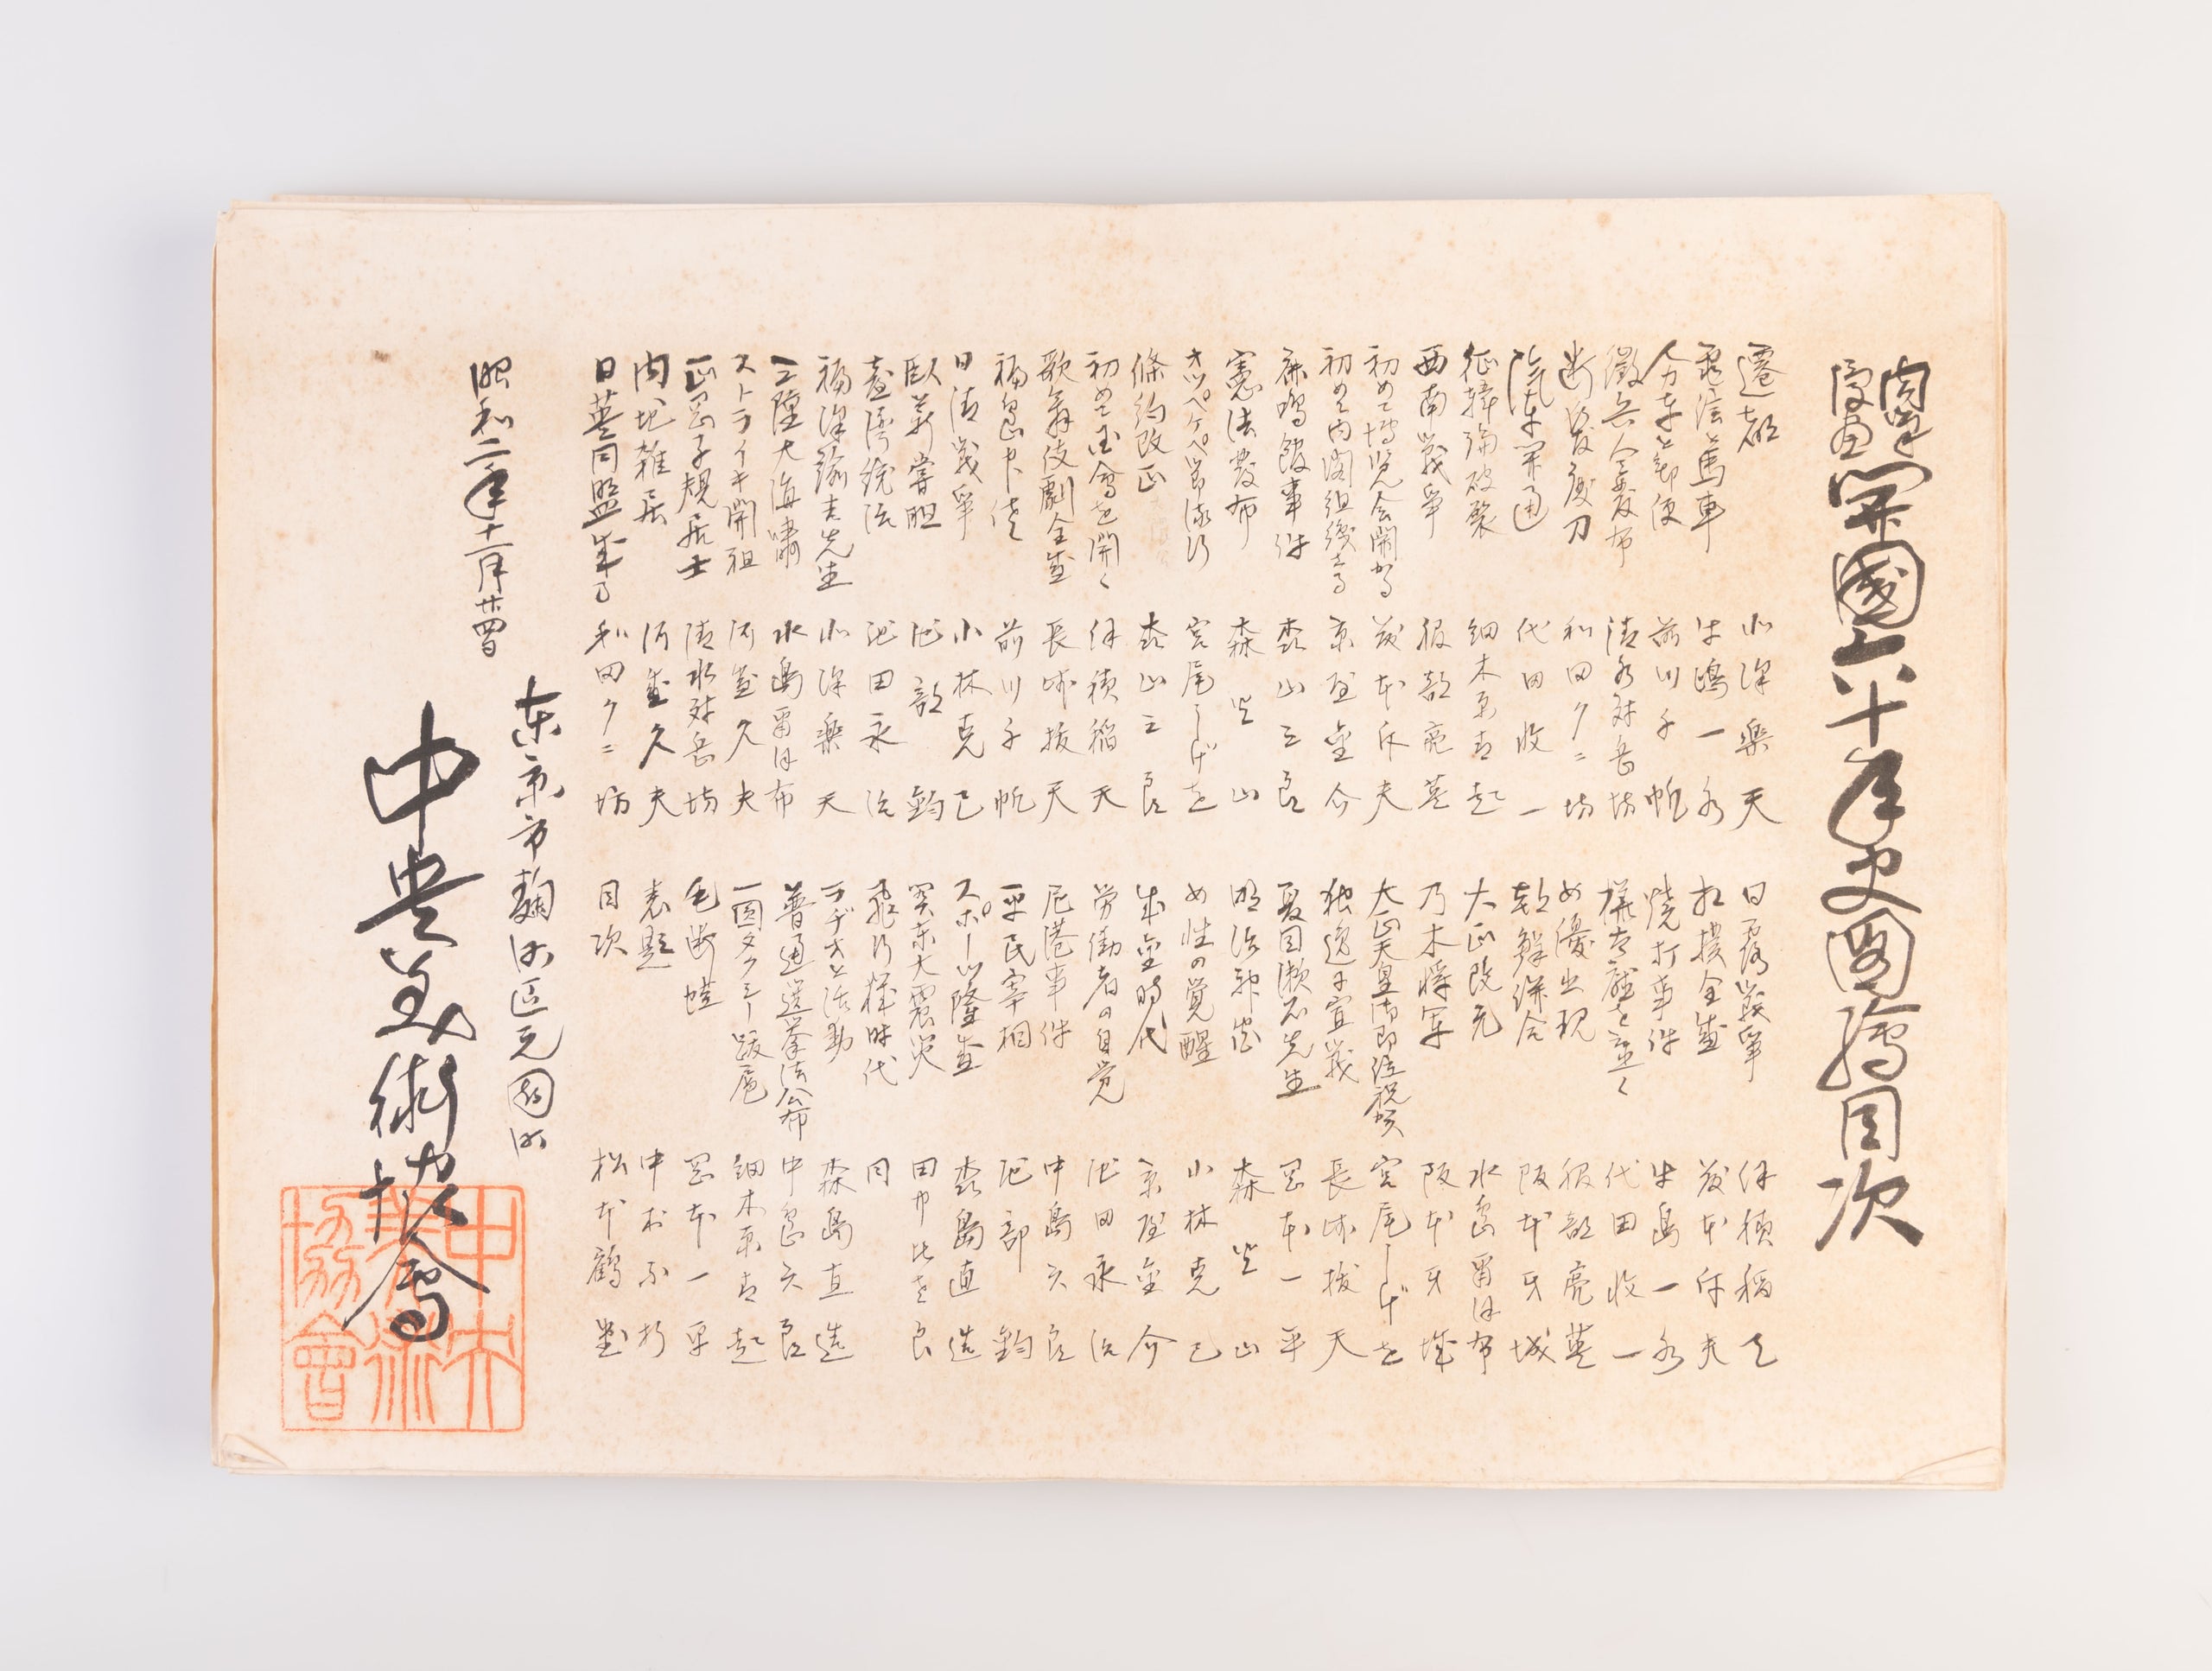 肉筆
漫画
開國六十年史図繪目次
遷都 北澤楽天
乗合馬車 牛島一水
人力車と郵便 前川千帆
徴兵令発布 清水対岳坊
断髪廃刀 和田クニ坊
汽車開通 代田收一
征韓論破裂 細木原青起
西南戦争 服部亮英
初めて博覧会開かる 茨木斥夫
初めて内閣組織さる 京屋金介
鹿鳴館事件 森山三良
憲法発布 森山
オッペケペ節流行 宮尾しげを
條約改正 森山三良
初めて国会を開く 保積稲天
歌舞伎劇全盛 長崎抜天
福島中佐 前川千帆
日清戦争 小林克己
臥薪嘗胆 池部鈞
臺湾統治 池田永治
福澤諭吉先生 北澤楽天
三陸大海嘯 水島爾保布
ストライキ開祖 河盛久夫
正岡子規居士 清水対岳坊
内地雑居 河盛久夫
日英同盟成る 和田クニ坊
日露戦争 保積稲天
相撲全盛 茨木斥夫
焼打事件 牛島一水
樺太廰を立く 代田收一
女優出現 服部亮英
朝鮮併合 阪本牙城
大正改元 水島爾保布
乃木将軍 阪本牙城
大正天皇御即位祝賀 宮尾しげを
独逸に宣戦 長崎抜天
夏目漱石先生 岡本一平
明治神宮 森山
女性の覚醒 小林克己
成金時代 京屋金介
労働者の自覚 池田永治
尼港事件 中島六良
平民宰相 池部鈞
スポーツ隆盛 森島直造
関東大震災 田中比左良
飛行機時代 同
ラヂオと活動 森島直造
普通選挙法公布 中島六良
一圓タクシー跋扈 細木原青起
毛断蛙 岡本一平
表題 中村不折
目次 松本鶴
昭和二年十一月廿四日
東京市麹町区元園町
中央美術協會
中央美術協會